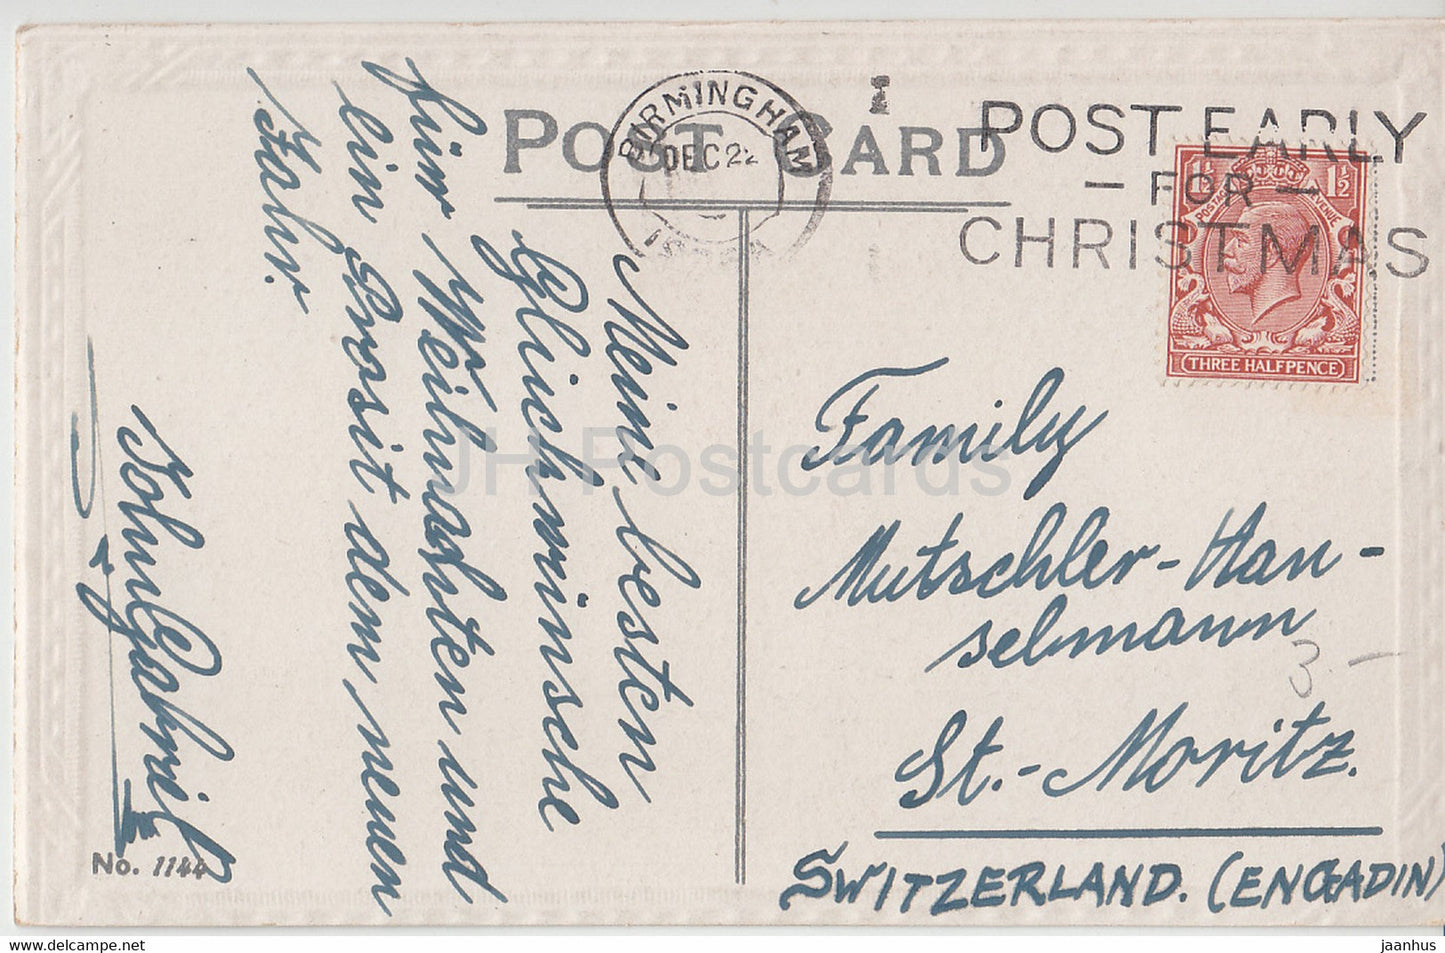 POST CARD
BIRMINGHAM
DEC 22
POST EARLY
— FOR —
CHRISTMAS
POSTAGE REVENUE
1½ 1½
THREE HALFPENCE
Meine besten
Glückwünsche
für Weihnachten und
ein Prosit dem neuen
Jahr.
Family
Mutschler-Han-
selmann
St.-Moritz.
SWITZERLAND. (ENGADIN)
3.—
No. 1144
JH Postcards
jaanhus